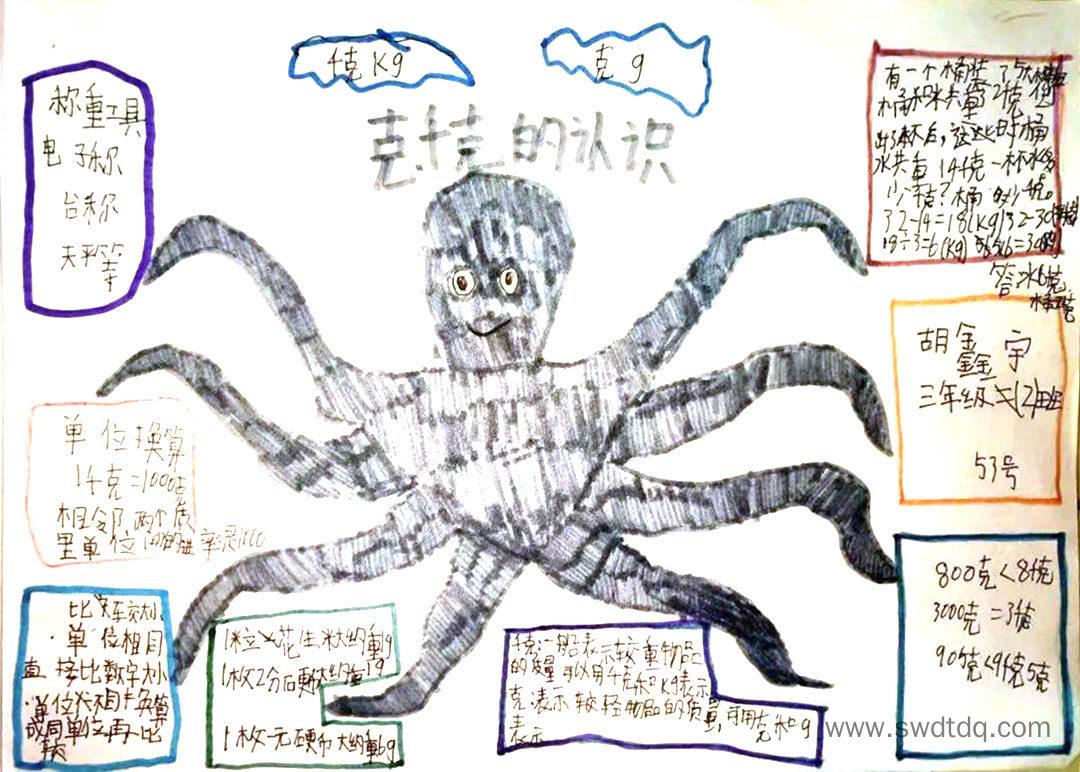 千克 Kg
克 g
克千克的认识
称重工具
电子称
台称
天平等
有一个桶装了5大杯水
桶和水共重
出3杯后,这时桶
水共重14千克一杯水多
少千克?桶多少千克。
32-14=18(Kg)
18÷3=6(Kg)
胡鑫宇
三年级(2)班
53号
单位换算
1千克=1000克
相邻两个质
量单位间的进率是1000
800克<8千克
3000克=3千克
905克<9千克5克
比较大小
·单位相同
直接比数字大小
·单位不同换算
成同单位再比
较
1粒花生米大约重1g
1枚2分硬币大约重1g
1枚一元硬币大约重6g
千克:一般表示较重物品
的质量可以用千克和Kg表示
克:表示较轻物品的质量,可用克和g
表示
www.swdtdq.com